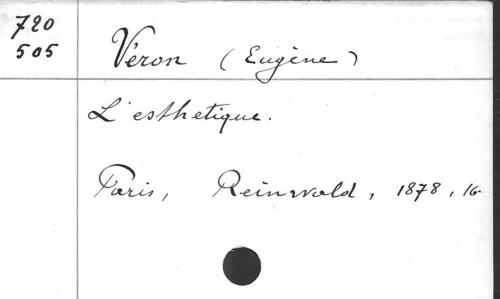 720
505
Véron (Eugène)
L'esthetique.
Paris, Reinwald, 1878, 16